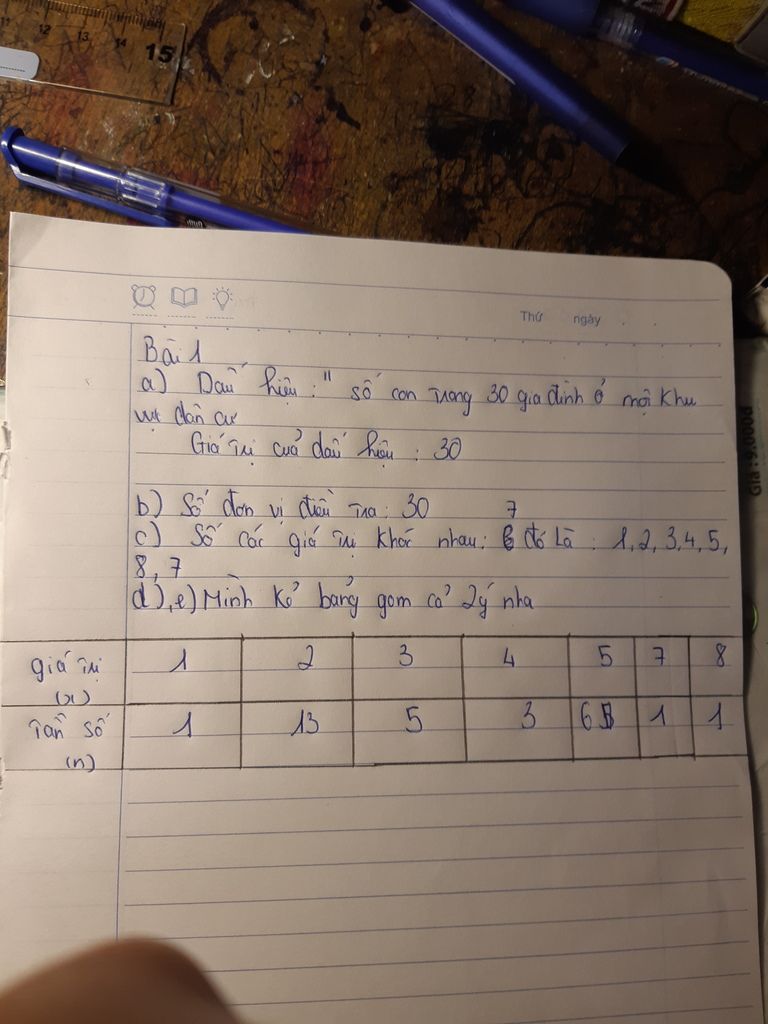 11 12 13 14 15
Thứ ngày
Giá: 9.000đ
Bài 1
a) Dấu hiệu: " số con trong 30 gia đình ở một khu
vực dân cư
Giá trị của dấu hiệu: 30
b) Số đơn vị điều tra: 30
7
c) Số các giá trị khác nhau: đó là: 1, 2, 3, 4, 5,
8, 7
d), e) Mình kẻ bảng gom cả 2 ý nha
giá trị (x) 1 2 3 4 5 7 8
Tần số (n) 1 13 5 3 6 1 1